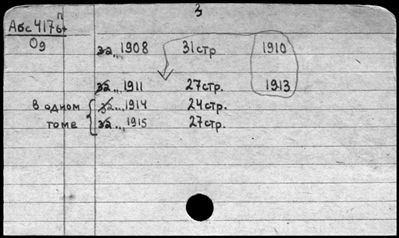 3
п
Абс 417б+
Од
за 1908 31стр 1910
за 1911 27стр. 1913
в одном за 1914 24стр.
томе за 1915 27стр.